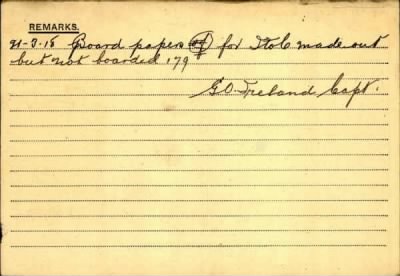 REMARKS.
21-3-15 Board papers of for I to C made out
but not boarded 179
G O Ireland Capt.